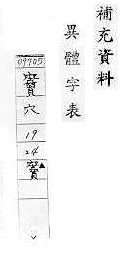 補充資料
異體字表
09705
穴
19
24